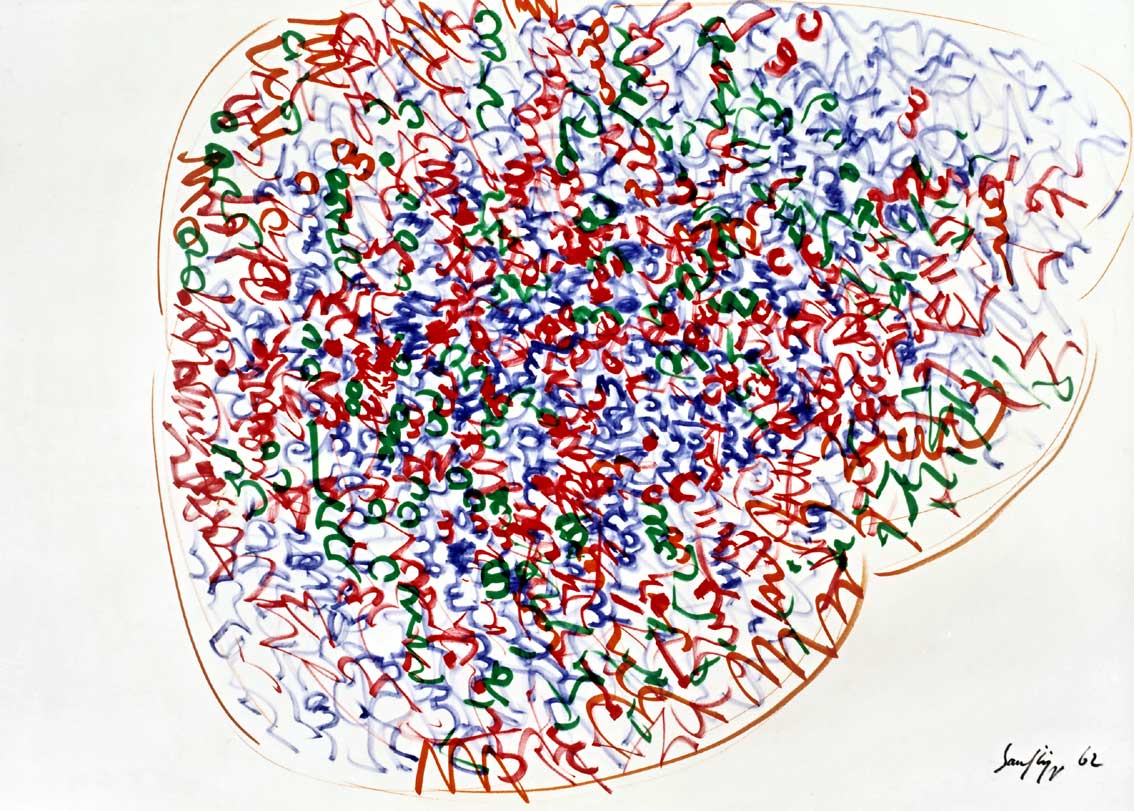 Sanfilippo 62